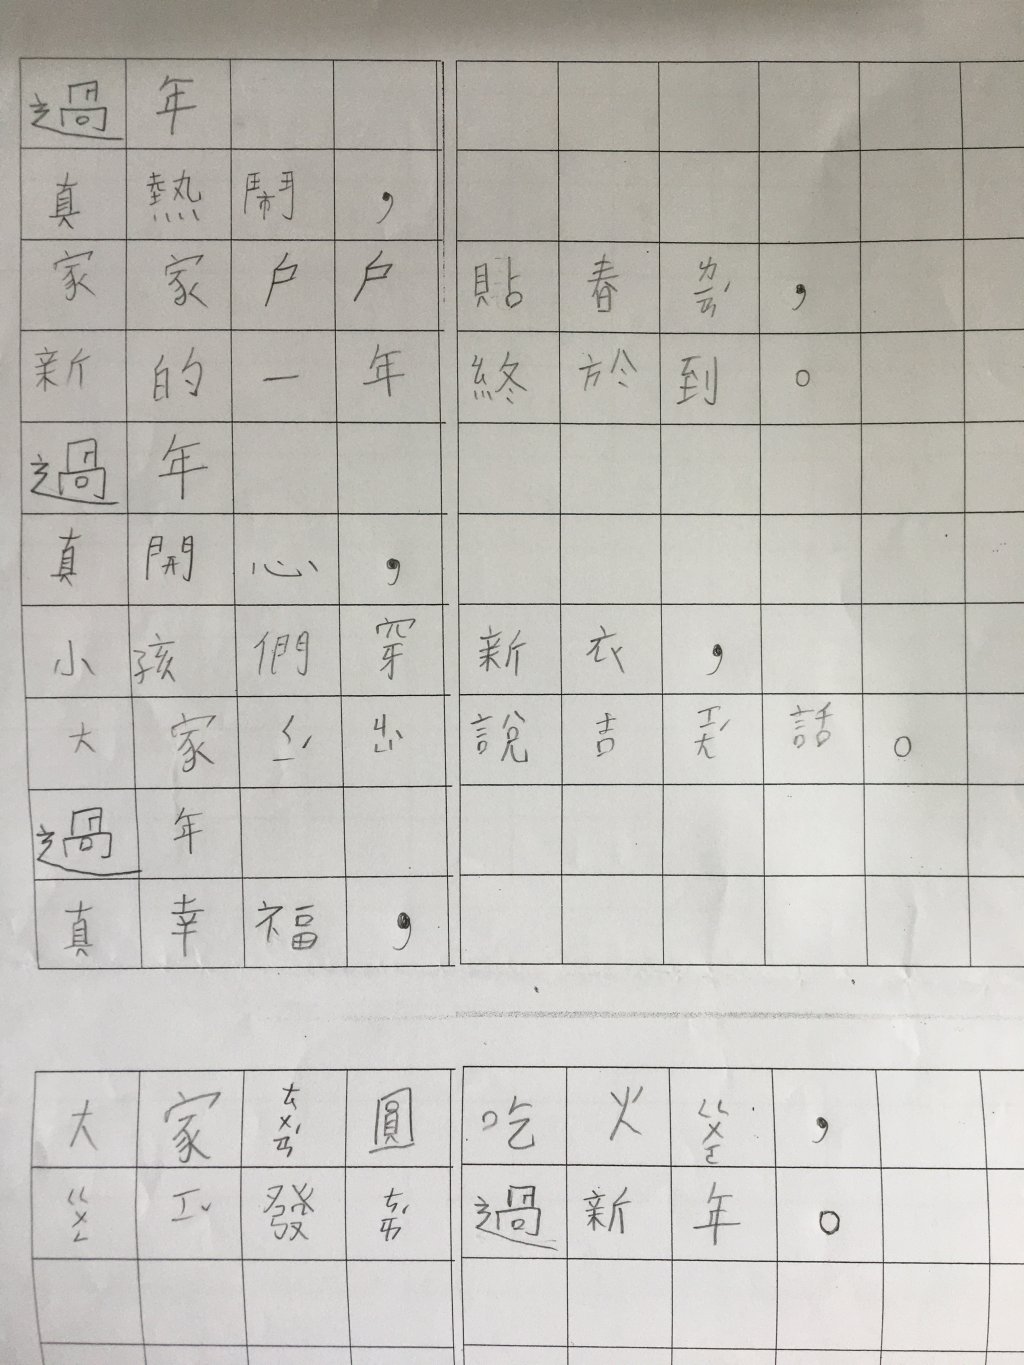 過年
真熱鬧，
家家戶戶貼春ㄌㄧㄢˊ，
新的一年終於到。
過年
真開心，
小孩們穿新衣，
大家ㄑㄧˊ說吉ㄒㄧㄤˊ話。
過年
真幸福，
大家ㄊㄨㄢˊ圓吃火ㄍㄨㄛ，
ㄍㄨㄥ ㄒㄧˇ發ㄘㄞˊ過新年。